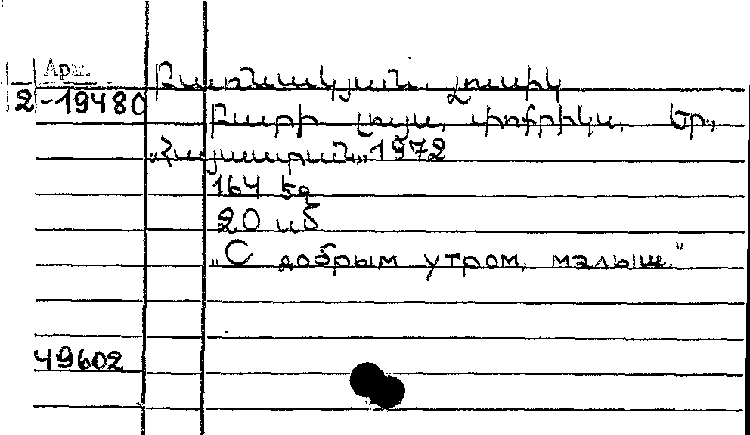 Арм. Բարսամյան, Լուսիկ
2-19480
Բարի լույս, փոքրիկս, Եր.,
„Հայաստան„ 1972
164 եջ
20 սմ
„С добрым утром, малыш.”
49602